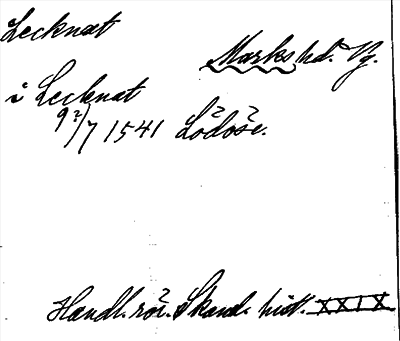 Lecknat
Marks hd. Vg.
i Lecknat
9/7 1541 Lödöse.
Handl. rör. Skand. hist. XXIX